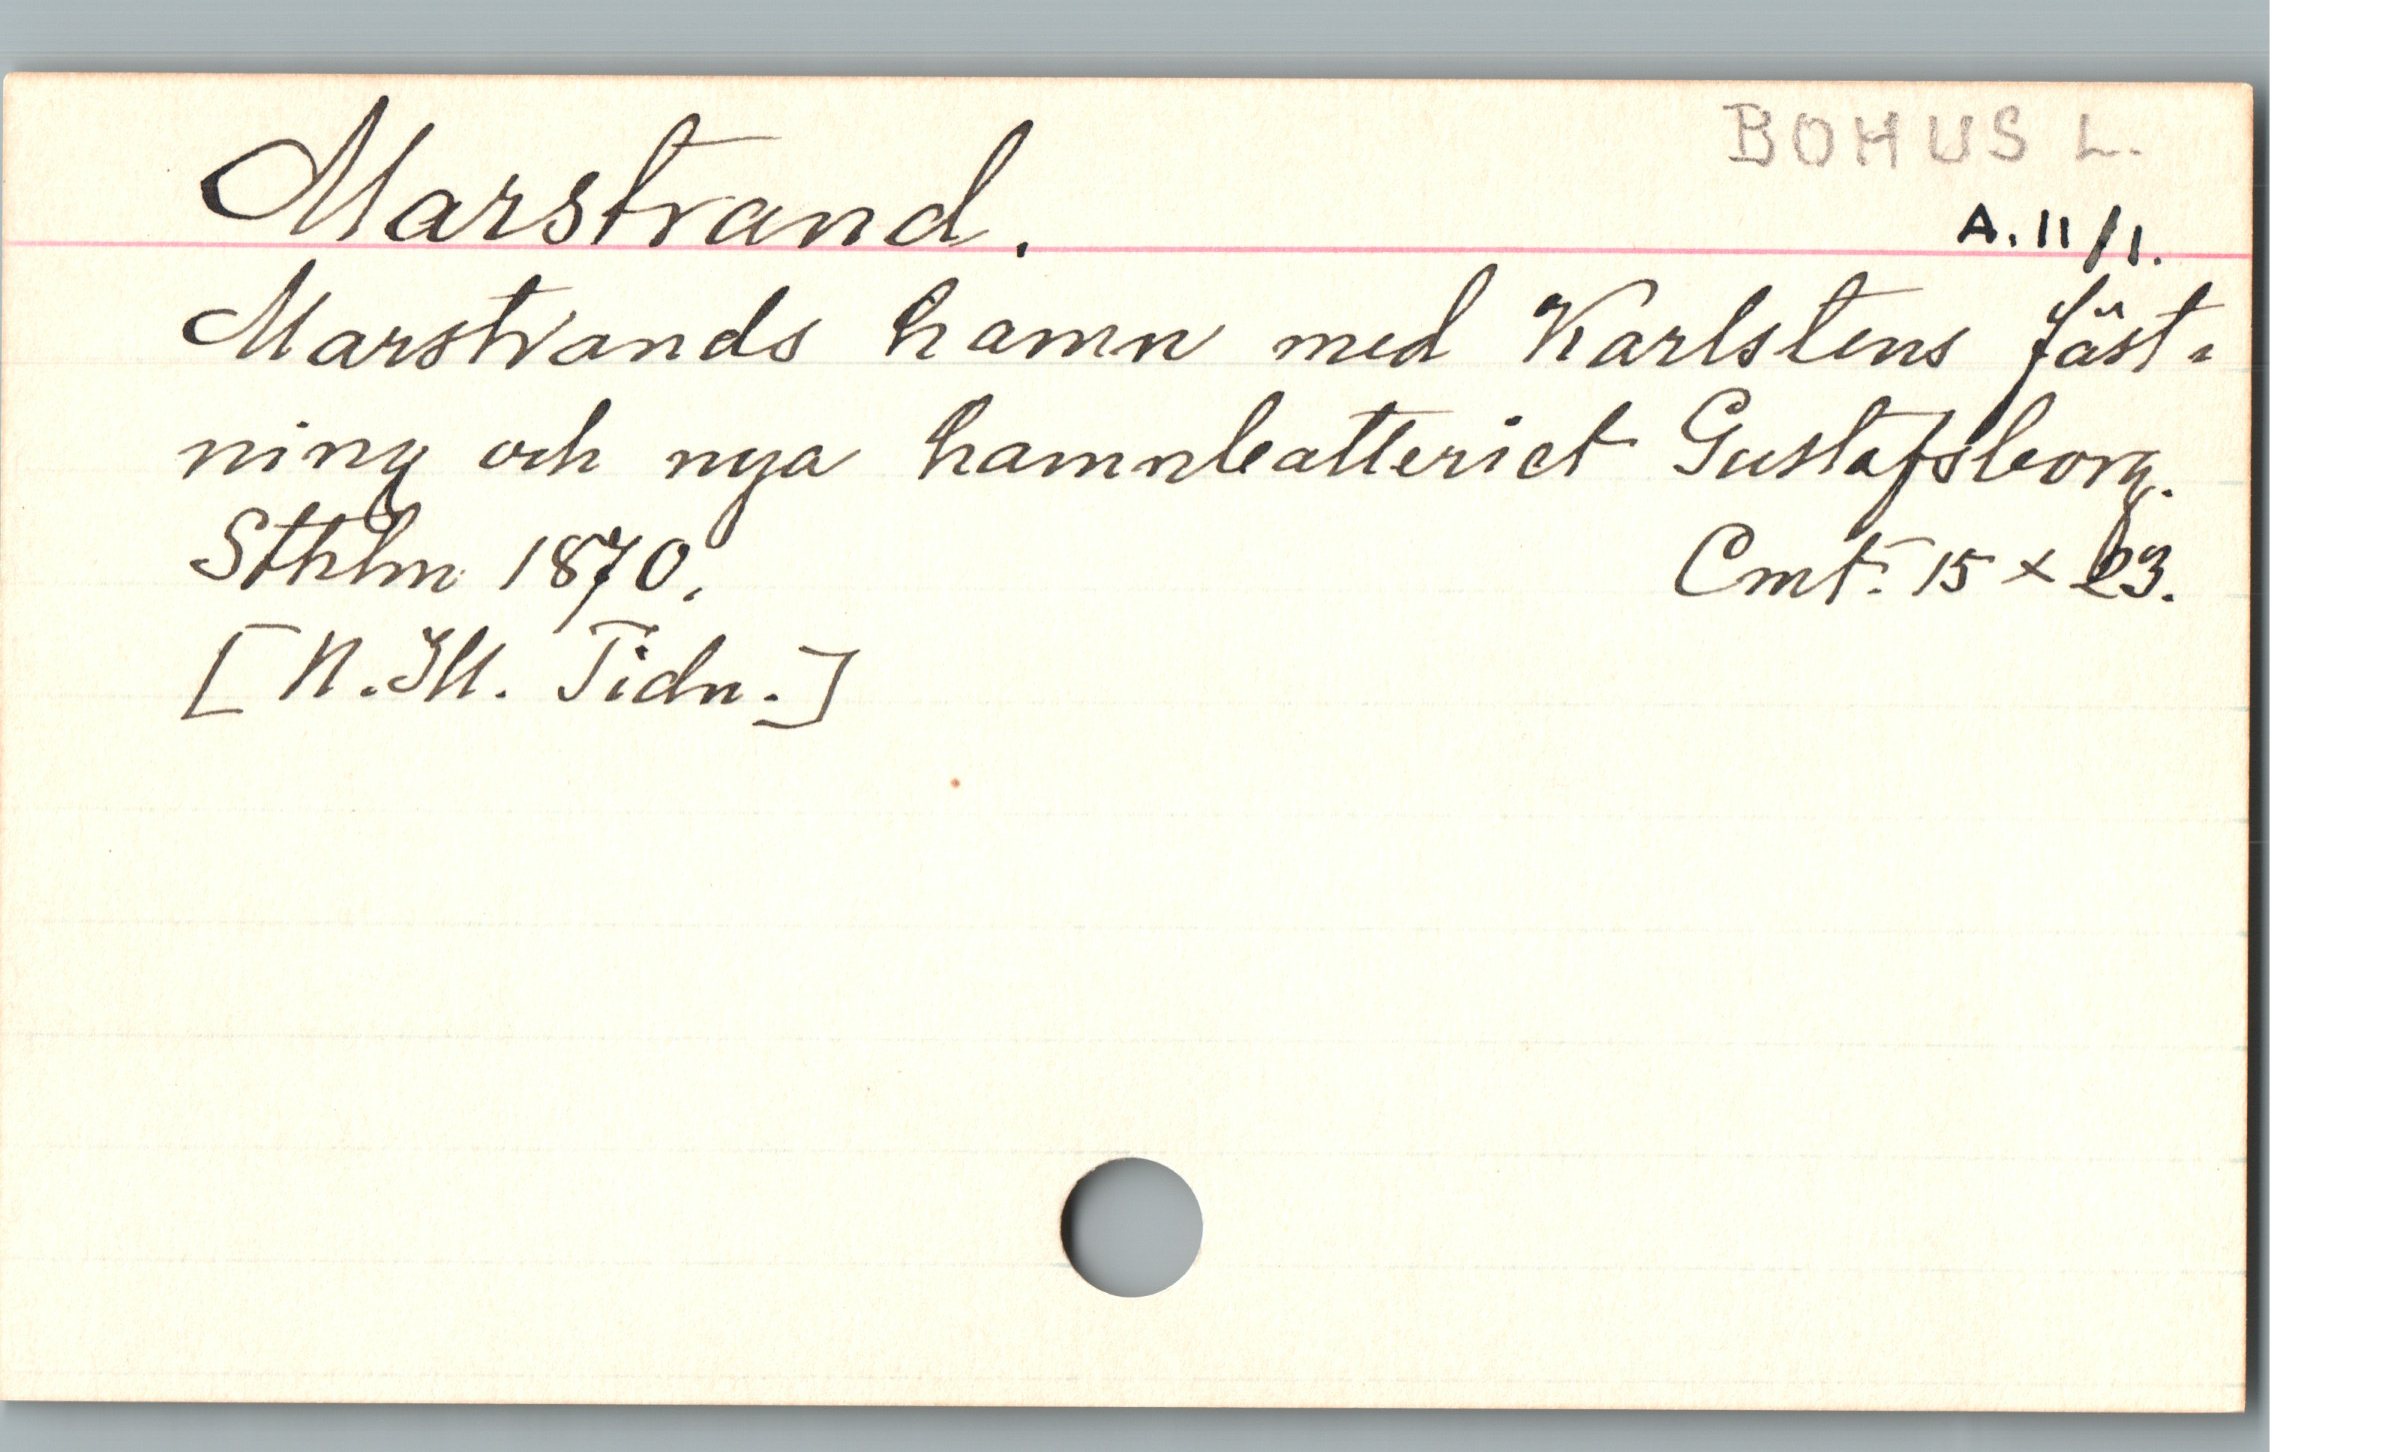 BOHUS L.
Marstrand.
A. 11/1.
Marstrands hamn med Karlstens fäst-
ning och nya hamnbatteriet Gustafsborg.
Sthlm 1870. Cmt. 15 x 23.
[N. Ill. Tidn.]